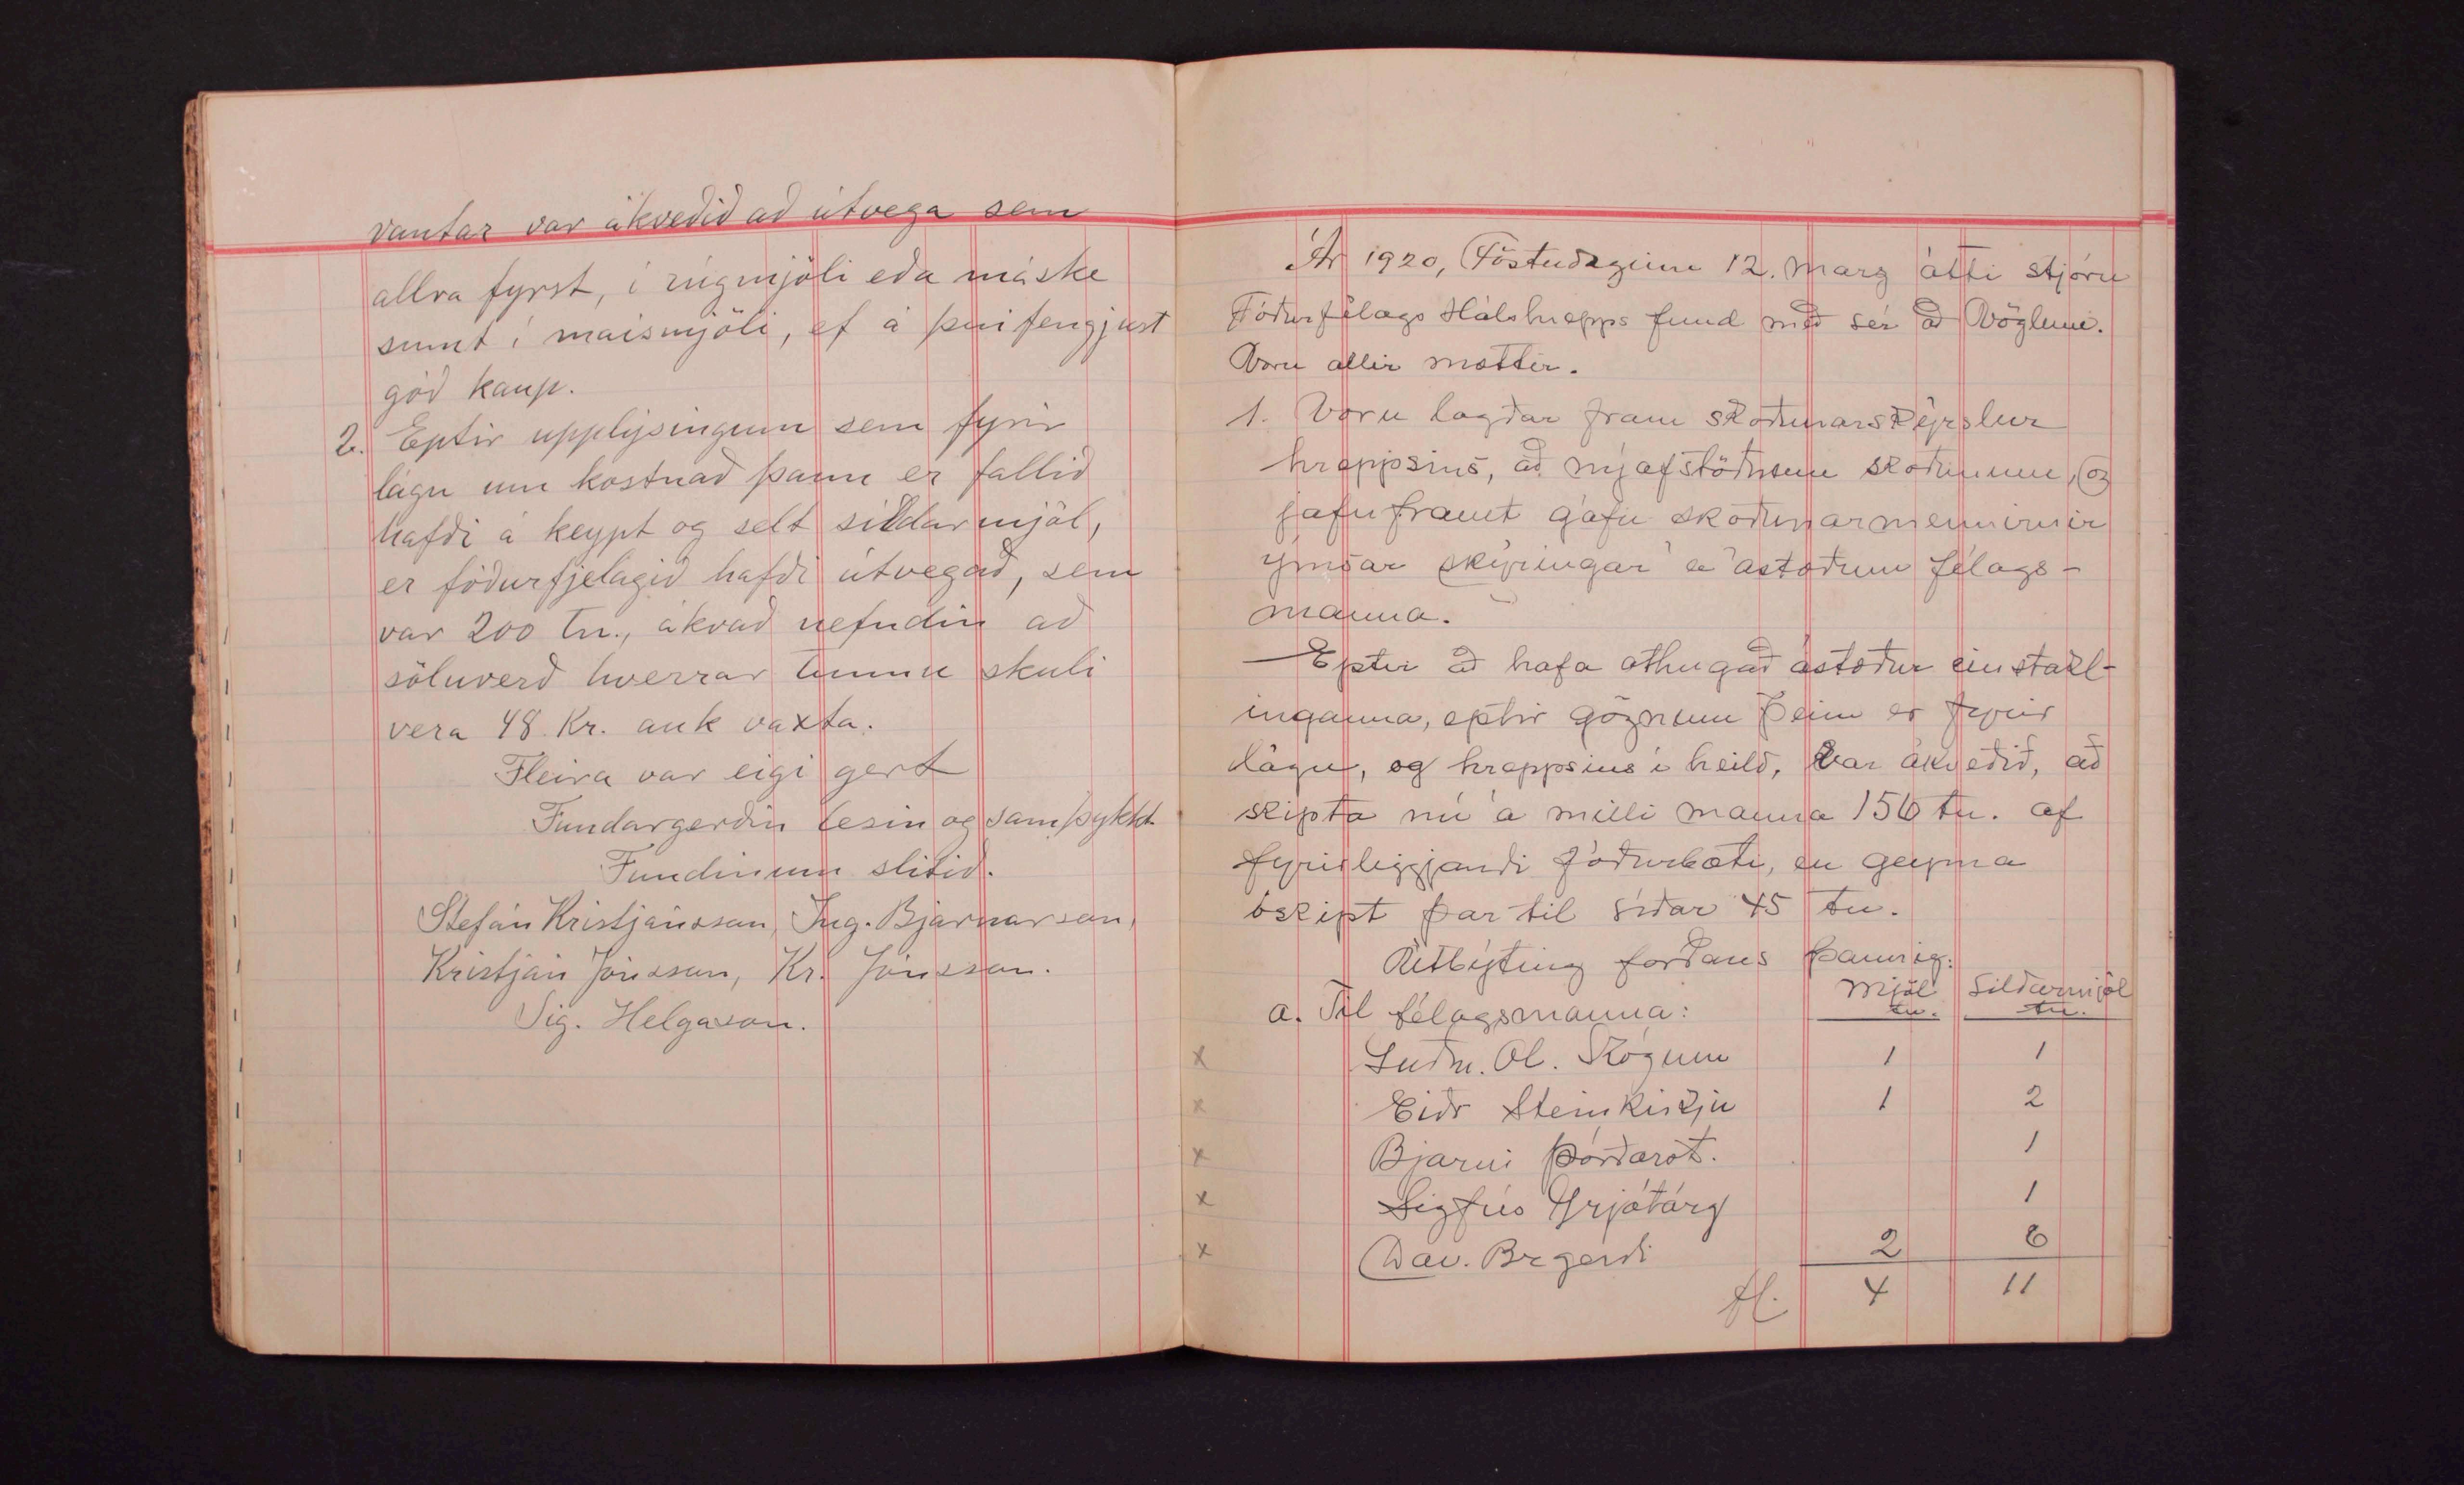 vantar var ákveðið að útvega sem
allra fyrst, í rúgmjöli eða máske
sumt í maismjöli, ef á því fengjust
góð kaup.
2. Eptir upplýsingum sem fyrir
lágu um kostnað þann er fallið
hafði á keypt og selt síldarmjöl,
er fóðurfjelagið hafði útvegað, sem
var 200 tn., ákvað nefndin að
söluverð hverrar tunnu skuli
vera 48 Kr. auk vaxta.
Fleira var eigi gert
Fundargerðin lesin og samþykkt.
Fundinum slitið.
Stefán Kristjánsson, Ing. Bjarnarson,
Kristján Jónsson, Kr. Jónsson.
Sig. Helgason.
Ár 1920, Föstudaginn 12. marz átti stjórn
Fóðurfélags Hálshrepps fund með sér að Vöglum.
Voru allir mættir.
1. Voru lagðar fram skoðunarskýrslur
hreppsins, að nýafstöðnum skoðunum, og
jafnframt gáfu skoðunarmennirnir
ýmsar skýringar á ástæðum félags-
manna.
Eptir að hafa athugað ástæður einstakl-
inganna, eptir gögnum þeim er fyrir
lágu, og hreppsins í heild, var ákveðið, að
skipta nú á milli manna 156 tn. af
fyrirliggjandi fóðurbæti, en geyma
óskipt þar til síðar 45 tn.
Útbýting forðans þannig:
mjöl síldarmjöl
a. Til félagsmanna: tn. tn.
x Guðm. Ól. Skógum 1 1
x Eiðr Steinkirkju 1 2
x Bjarni Þórðarst. 1
x Sigfús Grjótárg 1
x Dav. Br gerði 2 6
fl. 4 11